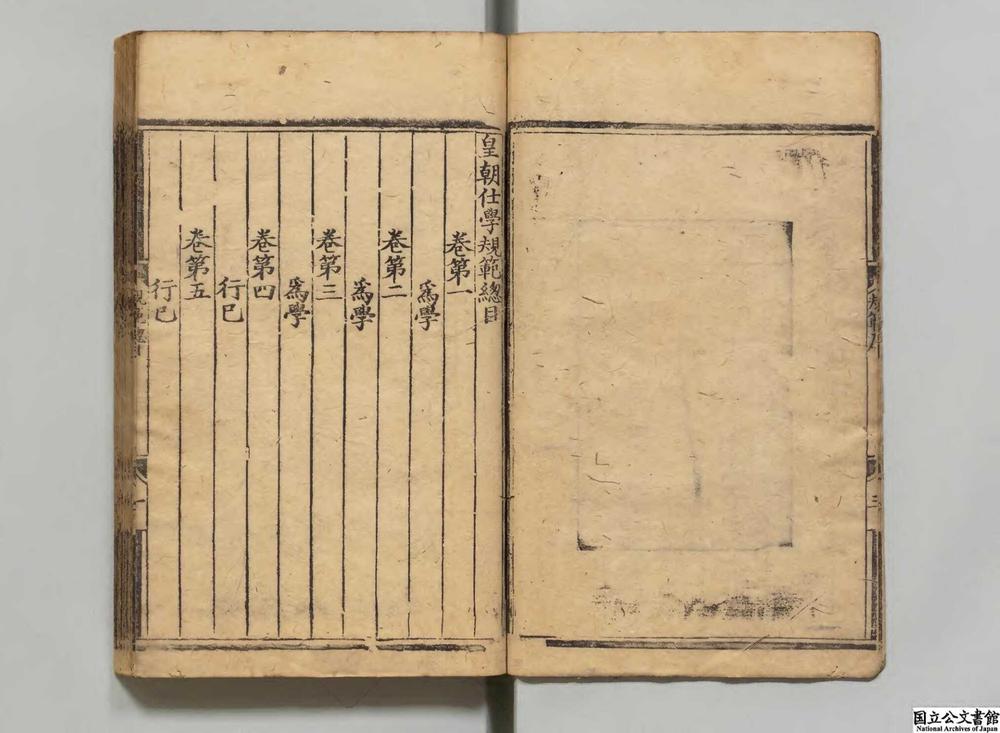 皇朝仕學規範總目
卷第一
爲學
卷第二
爲學
卷第三
爲學
卷第四
行己
卷第五
行己
三
一
国立公文書館
National Archives of Japan